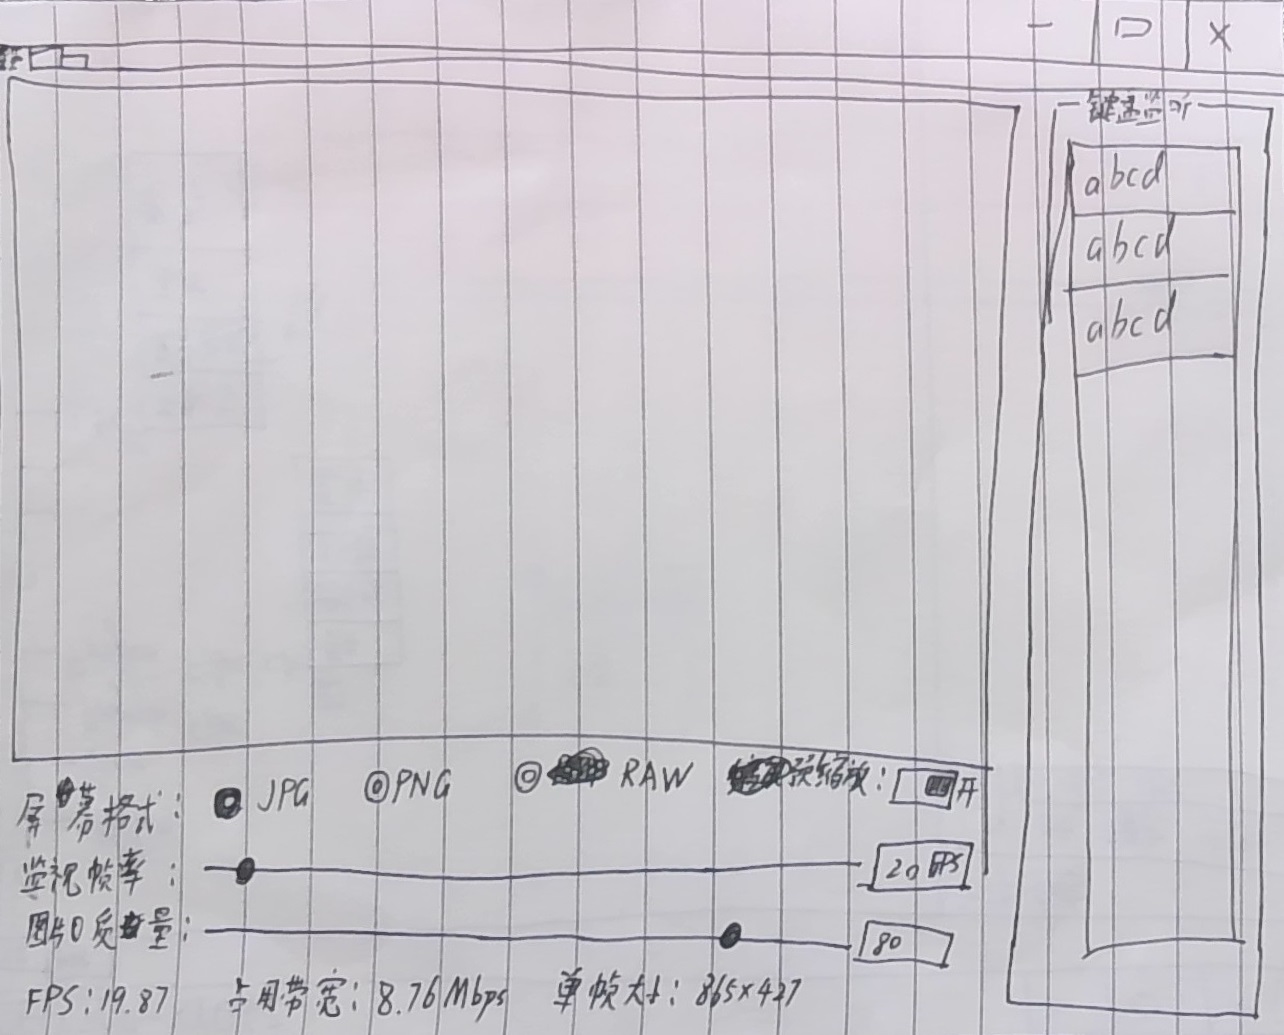 键盘监听
abcd
abcd
abcd
屏幕格式: JPG PNG RAW 预缩放: 开
监视帧率: 20 FPS
图片质量: 80
FPS:19.87 占用带宽: 8.76Mbps 单帧大小: 865×427